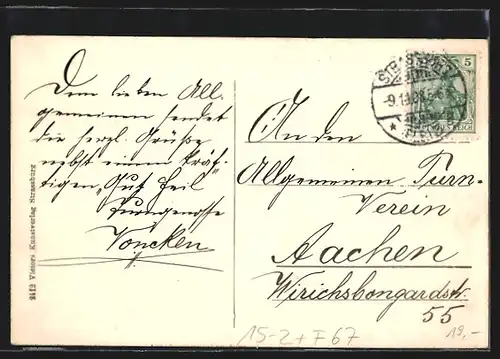 Dem lieben All-
gemeinen sendet
die herzl. Grüße
nebst einem kräf-
tigen „Gut Heil
Turngenosse
Voncken
2412 Vienors Kunstverlag Strassburg
STRASSBURG
5
REICH
An den
Allgemeinen Turn-
Verein
Aachen
Wirichsbongardstr.
55
15-2+F67
19,-